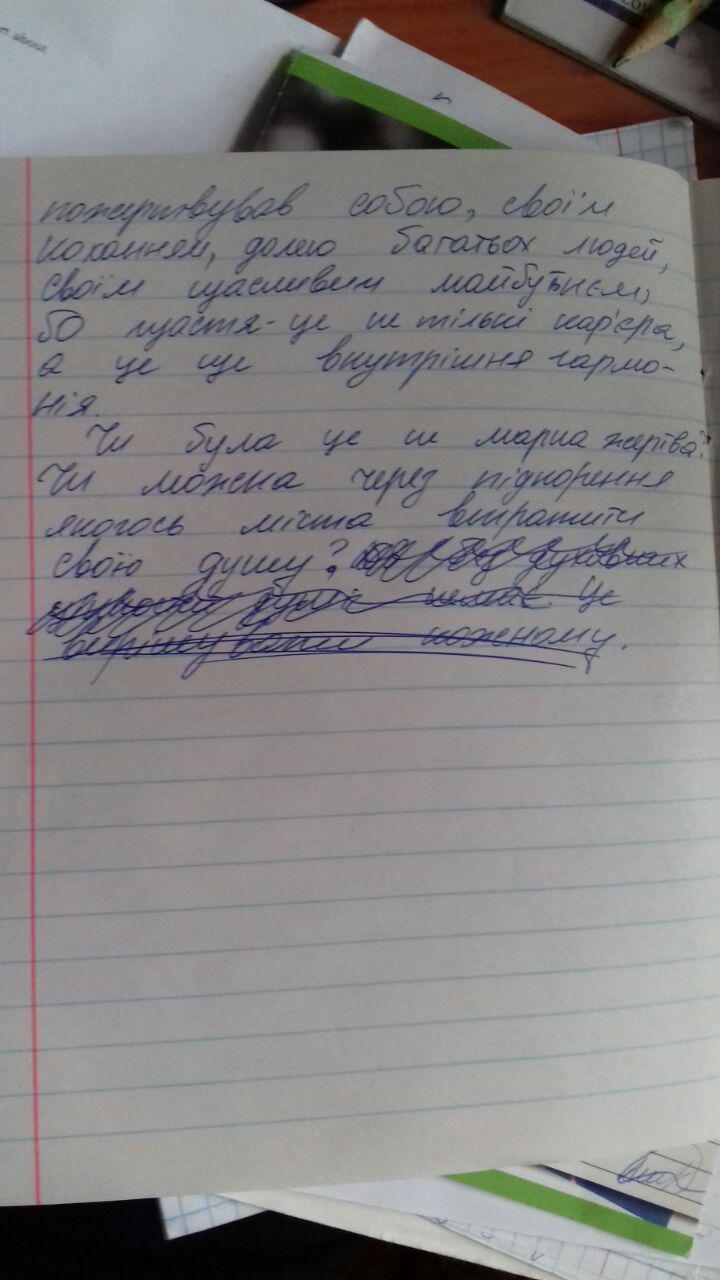 пожертвував собою, своїм
коханням, долею багатьох людей,
своїм щасливим майбутнєм,
бо щастя - це не тільки кар'єра,
а це ще внутрішня гармо-
нія.
Чи була це не марна жертва?
Чи можна через підкорення
якогось міста втратити
свою душу? без духовних
немає. Це
вирішувати кожному.